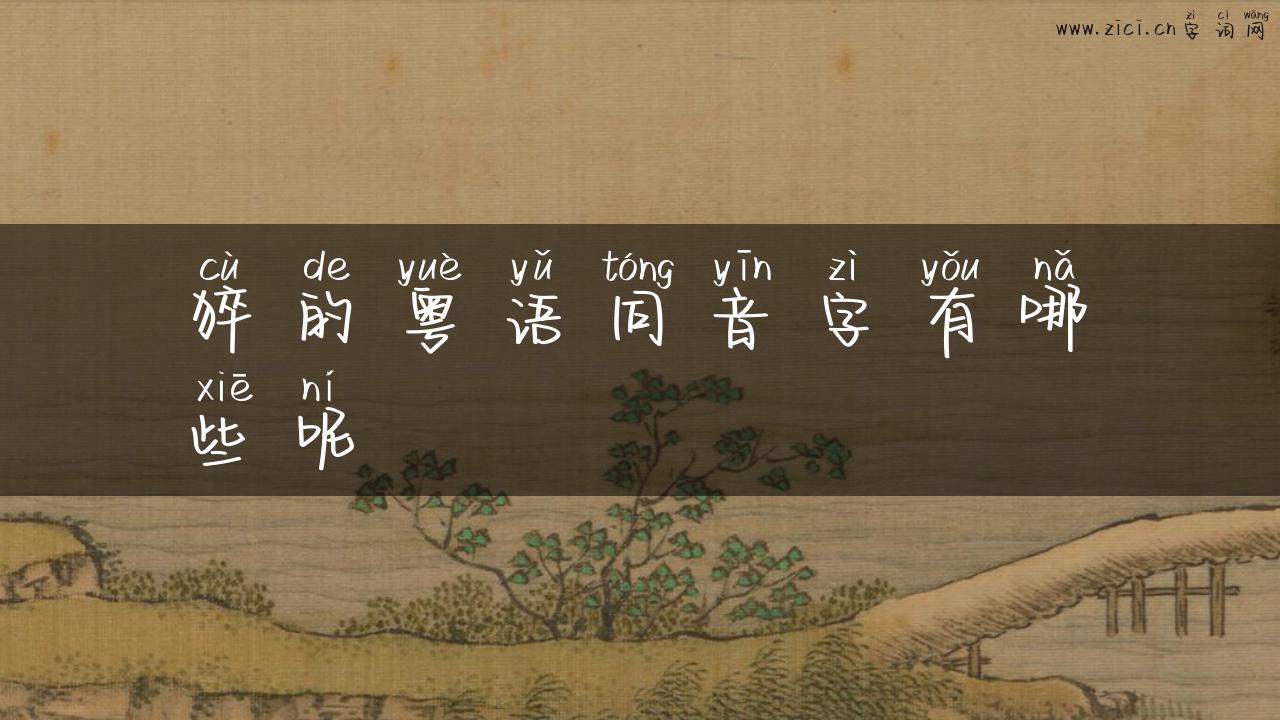 zì cí wǎng
www.zici.cn 字词网
cù de yuè yǔ tóng yīn zì yǒu nǎ
猝的粤语同音字有哪
xiē ní
些呢